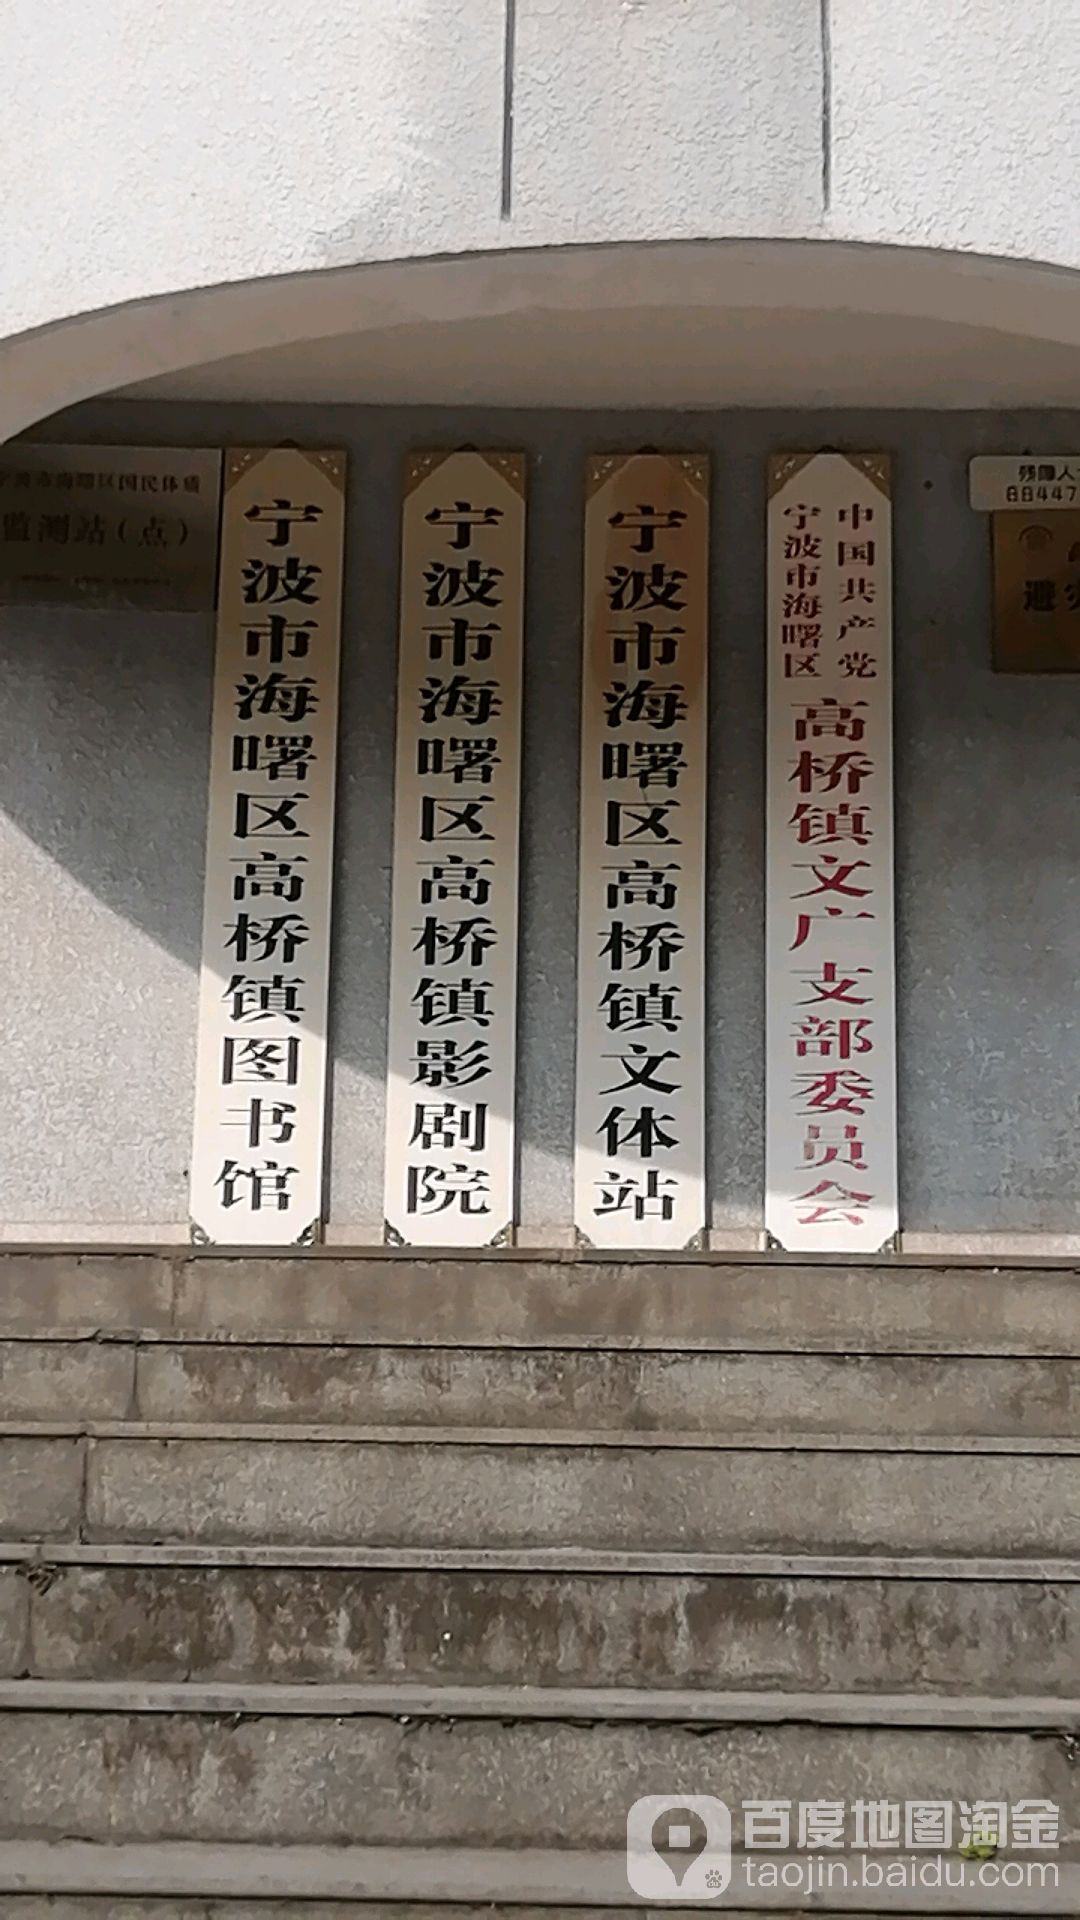 宁波市海曙区国民体质
监测站(点)
宁波市海曙区高桥镇图书馆
宁波市海曙区高桥镇影剧院
宁波市海曙区高桥镇文体站
中国共产党
宁波市海曙区
高桥镇文广支部委员会
残障人
88447
避灾
百度地图淘金
taojin.baidu.com